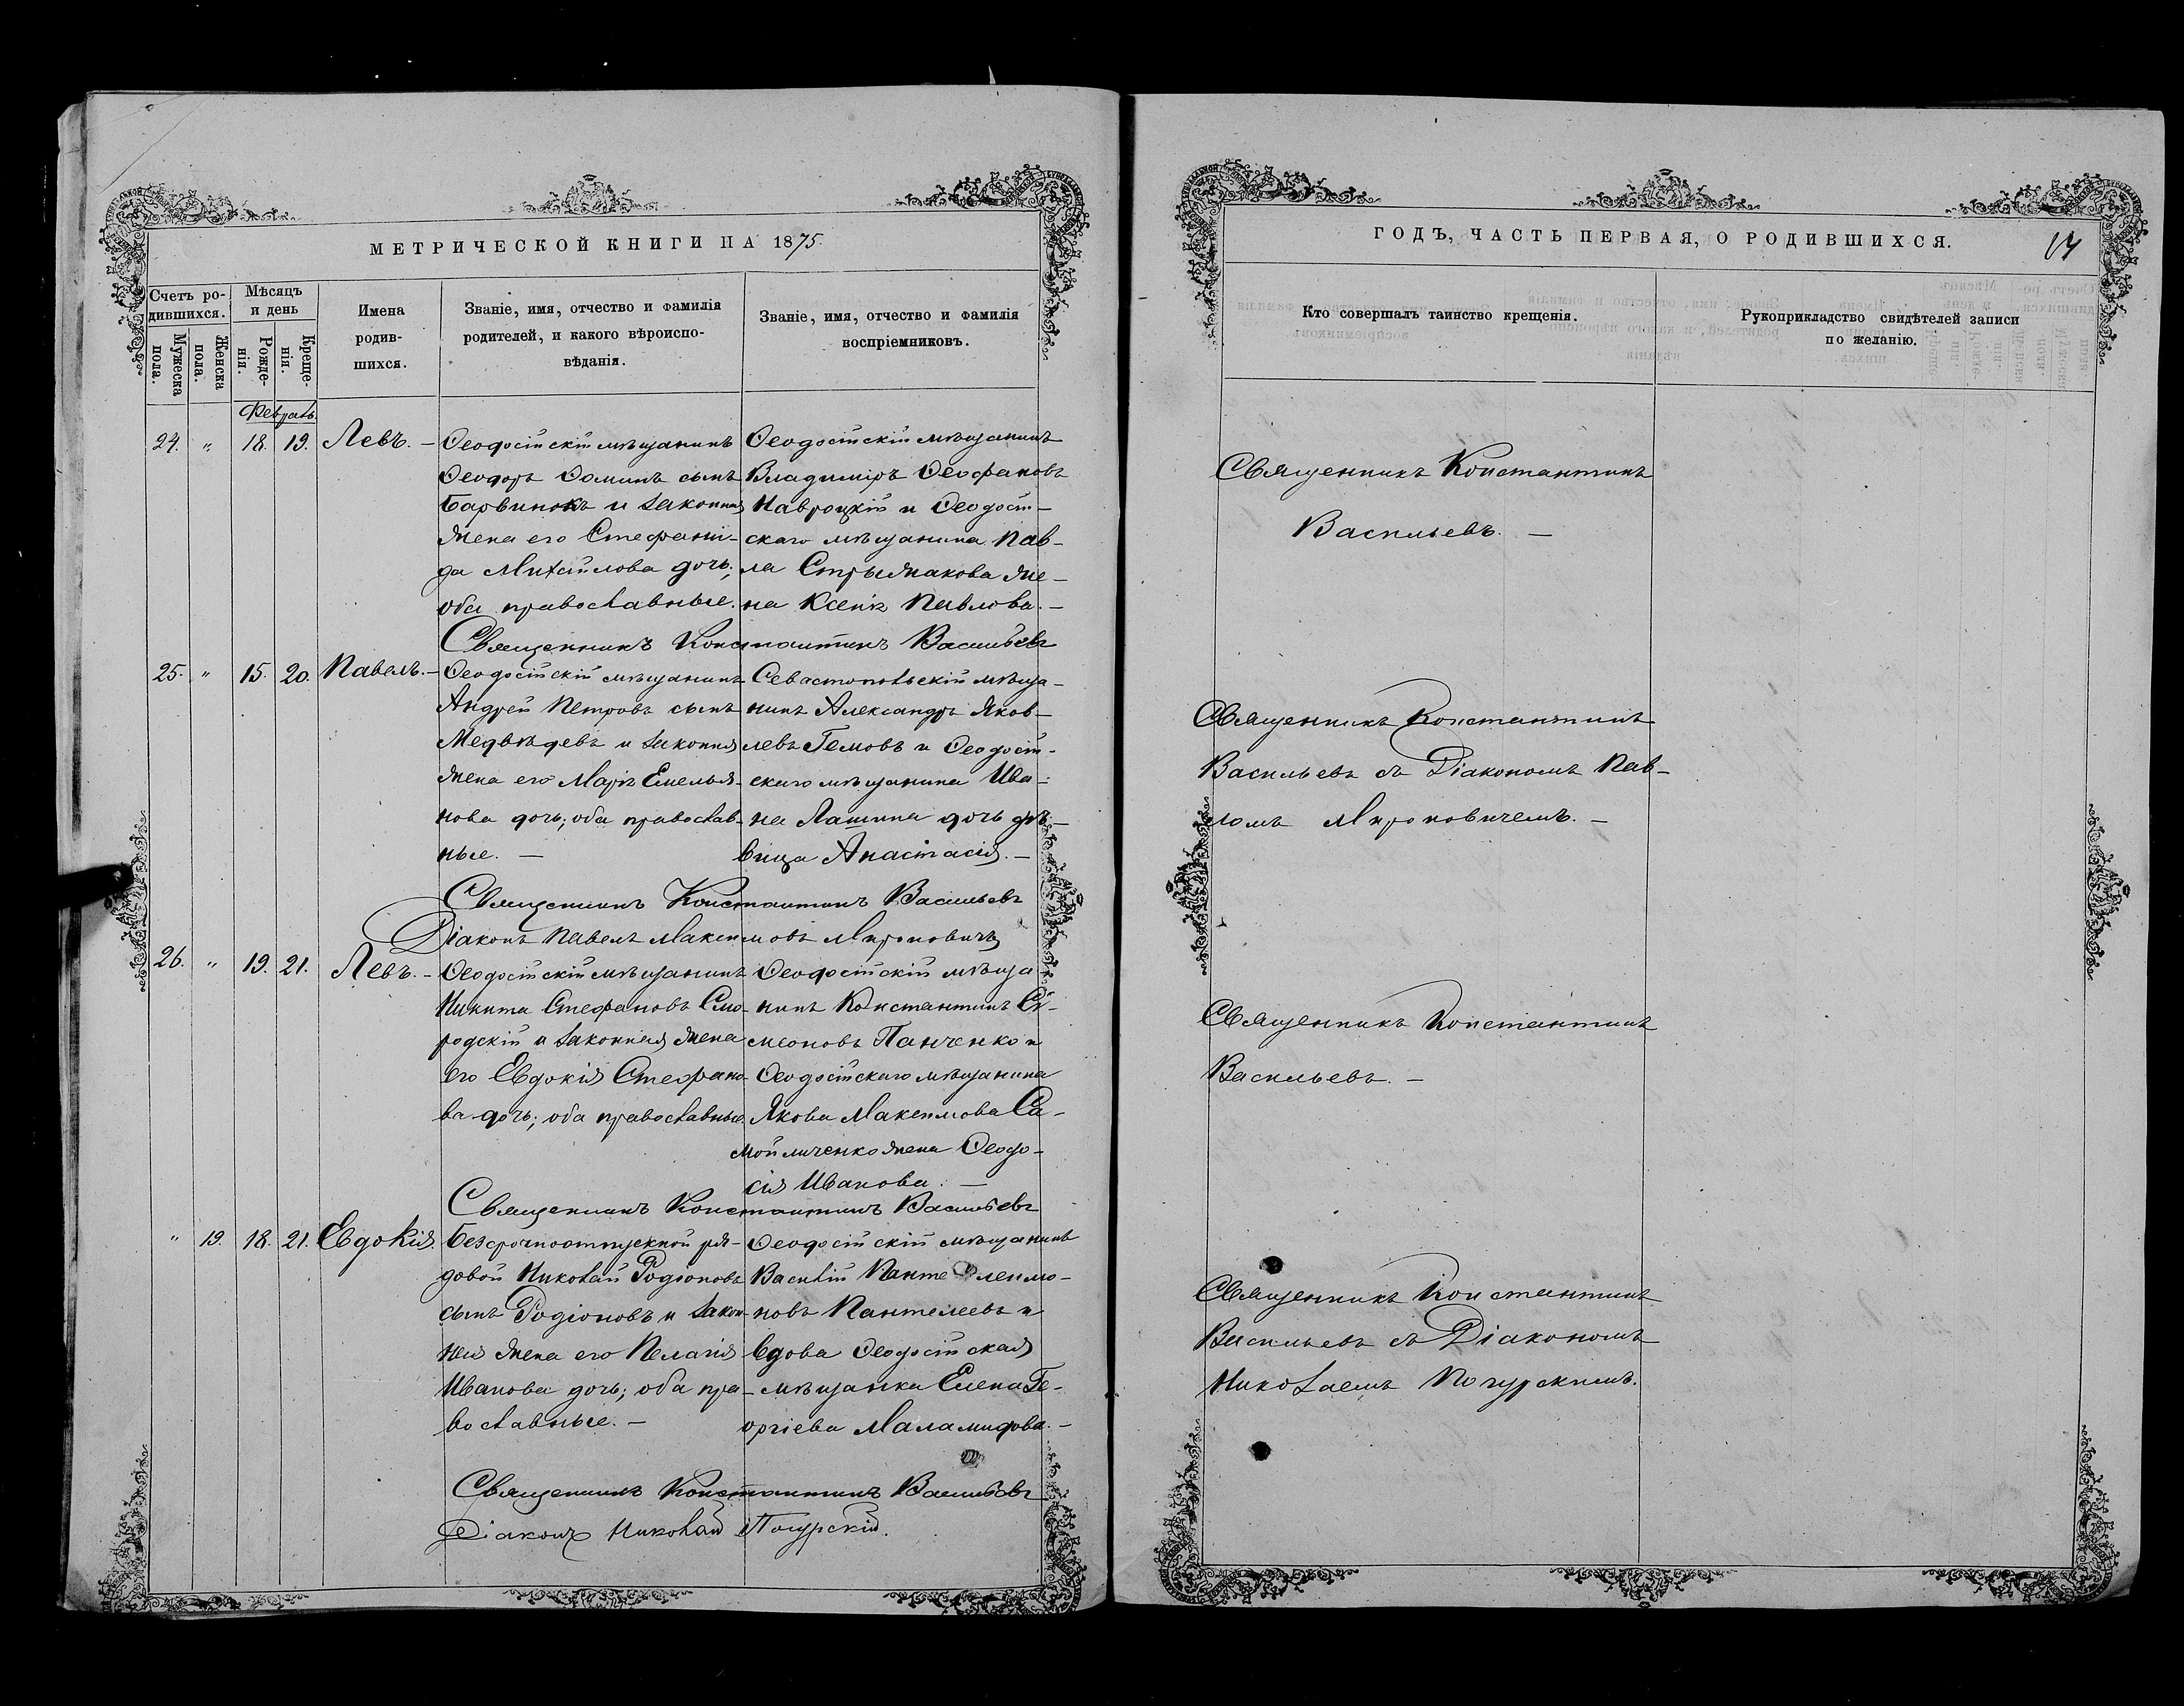 МЕТРИЧЕСКОЙ КНИГИ НА 1875.
Счетъ ро-
дившихся.
Мужеска пола.
Женска пола.
Мѣсяцъ и день
Рожде-
нія.
Креще-
нія.
Имена
родив-
шихся.
Званіе, имя, отчество и фамилія
родителей, и какого вѣроиспо-
вѣданія.
Званіе, имя, отчество и фамилія
воспріемниковъ.
Февраль.
24. " 18. 19. Левъ. —
Ѳеодосійскій мѣщанинъ
Ѳеодоръ Ѳоминъ сынъ
Барвинокъ и законная
жена его Стефани-
да Михайлова дочь;
оба православные.
Ѳеодосійскій мѣщанинъ
Владиміръ Ѳеофановъ
Навроцкій и Ѳеодосій-
скаго мѣщанина Пав-
ла Стрыжакова же-
на Ксенія Павлова. —
Священникъ Константинъ Васильевъ
25. " 15. 20. Павелъ. —
Ѳеодосійскій мѣщанинъ
Андрей Петровъ сынъ
Медвѣдевъ и законная
жена его Марія Емелья-
нова дочь; оба православ-
ные. —
Севастопольскій мѣща-
нинъ Александръ Яков-
левъ Гемовъ и Ѳеодосій-
скаго мѣщанина Ива-
на Лашина дочь дѣ-
вица Анастасія. —
Священникъ Константинъ Васильевъ
Діаконъ Павелъ Максимовъ Мироновичъ
26. " 19. 21. Левъ. —
Ѳеодосійскій мѣщанинъ
Никита Стефановъ Смо-
родскій и законная жена
его Евдокія Стефано-
ва дочь; оба православные
Ѳеодосійскій мѣща
нинъ Константинъ Си-
меоновъ Панченко и
Ѳеодосійскаго мѣщанина
Якова Максимова Са-
мойличенко жена Ѳеодо-
сія Иванова. —
Священникъ Константинъ Васильевъ
" 19. 18. 21. Евдокія.
Безсрочноотпускной ря-
довой Николай Родіоновъ
сынъ Родіоновъ и закон-
ная жена его Пелагія
Иванова дочь; оба пра-
вославные. —
Ѳеодосійскій мѣщанинъ
Василій Пантелеимо-
новъ Пантелеевъ и
вдова Ѳеодосійская
мѣщанка Елена Ге-
оргіева Маламидова. —
Священникъ Константинъ Васильевъ
Діаконъ Николай Погурскій.
ГОДЪ, ЧАСТЬ ПЕРВАЯ, О РОДИВШИХСЯ.
Кто совершалъ таинство крещенія.
Рукоприкладство свидѣтелей записи
по желанію.
Священникъ Константинъ
Васильевъ. —
Священникъ Константинъ
Васильевъ съ Діакономъ Пав-
ломъ Мироновичемъ. —
Священникъ Константинъ
Васильевъ. —
Священникъ Константинъ
Васильевъ съ Діакономъ
Николаемъ Погурскимъ.